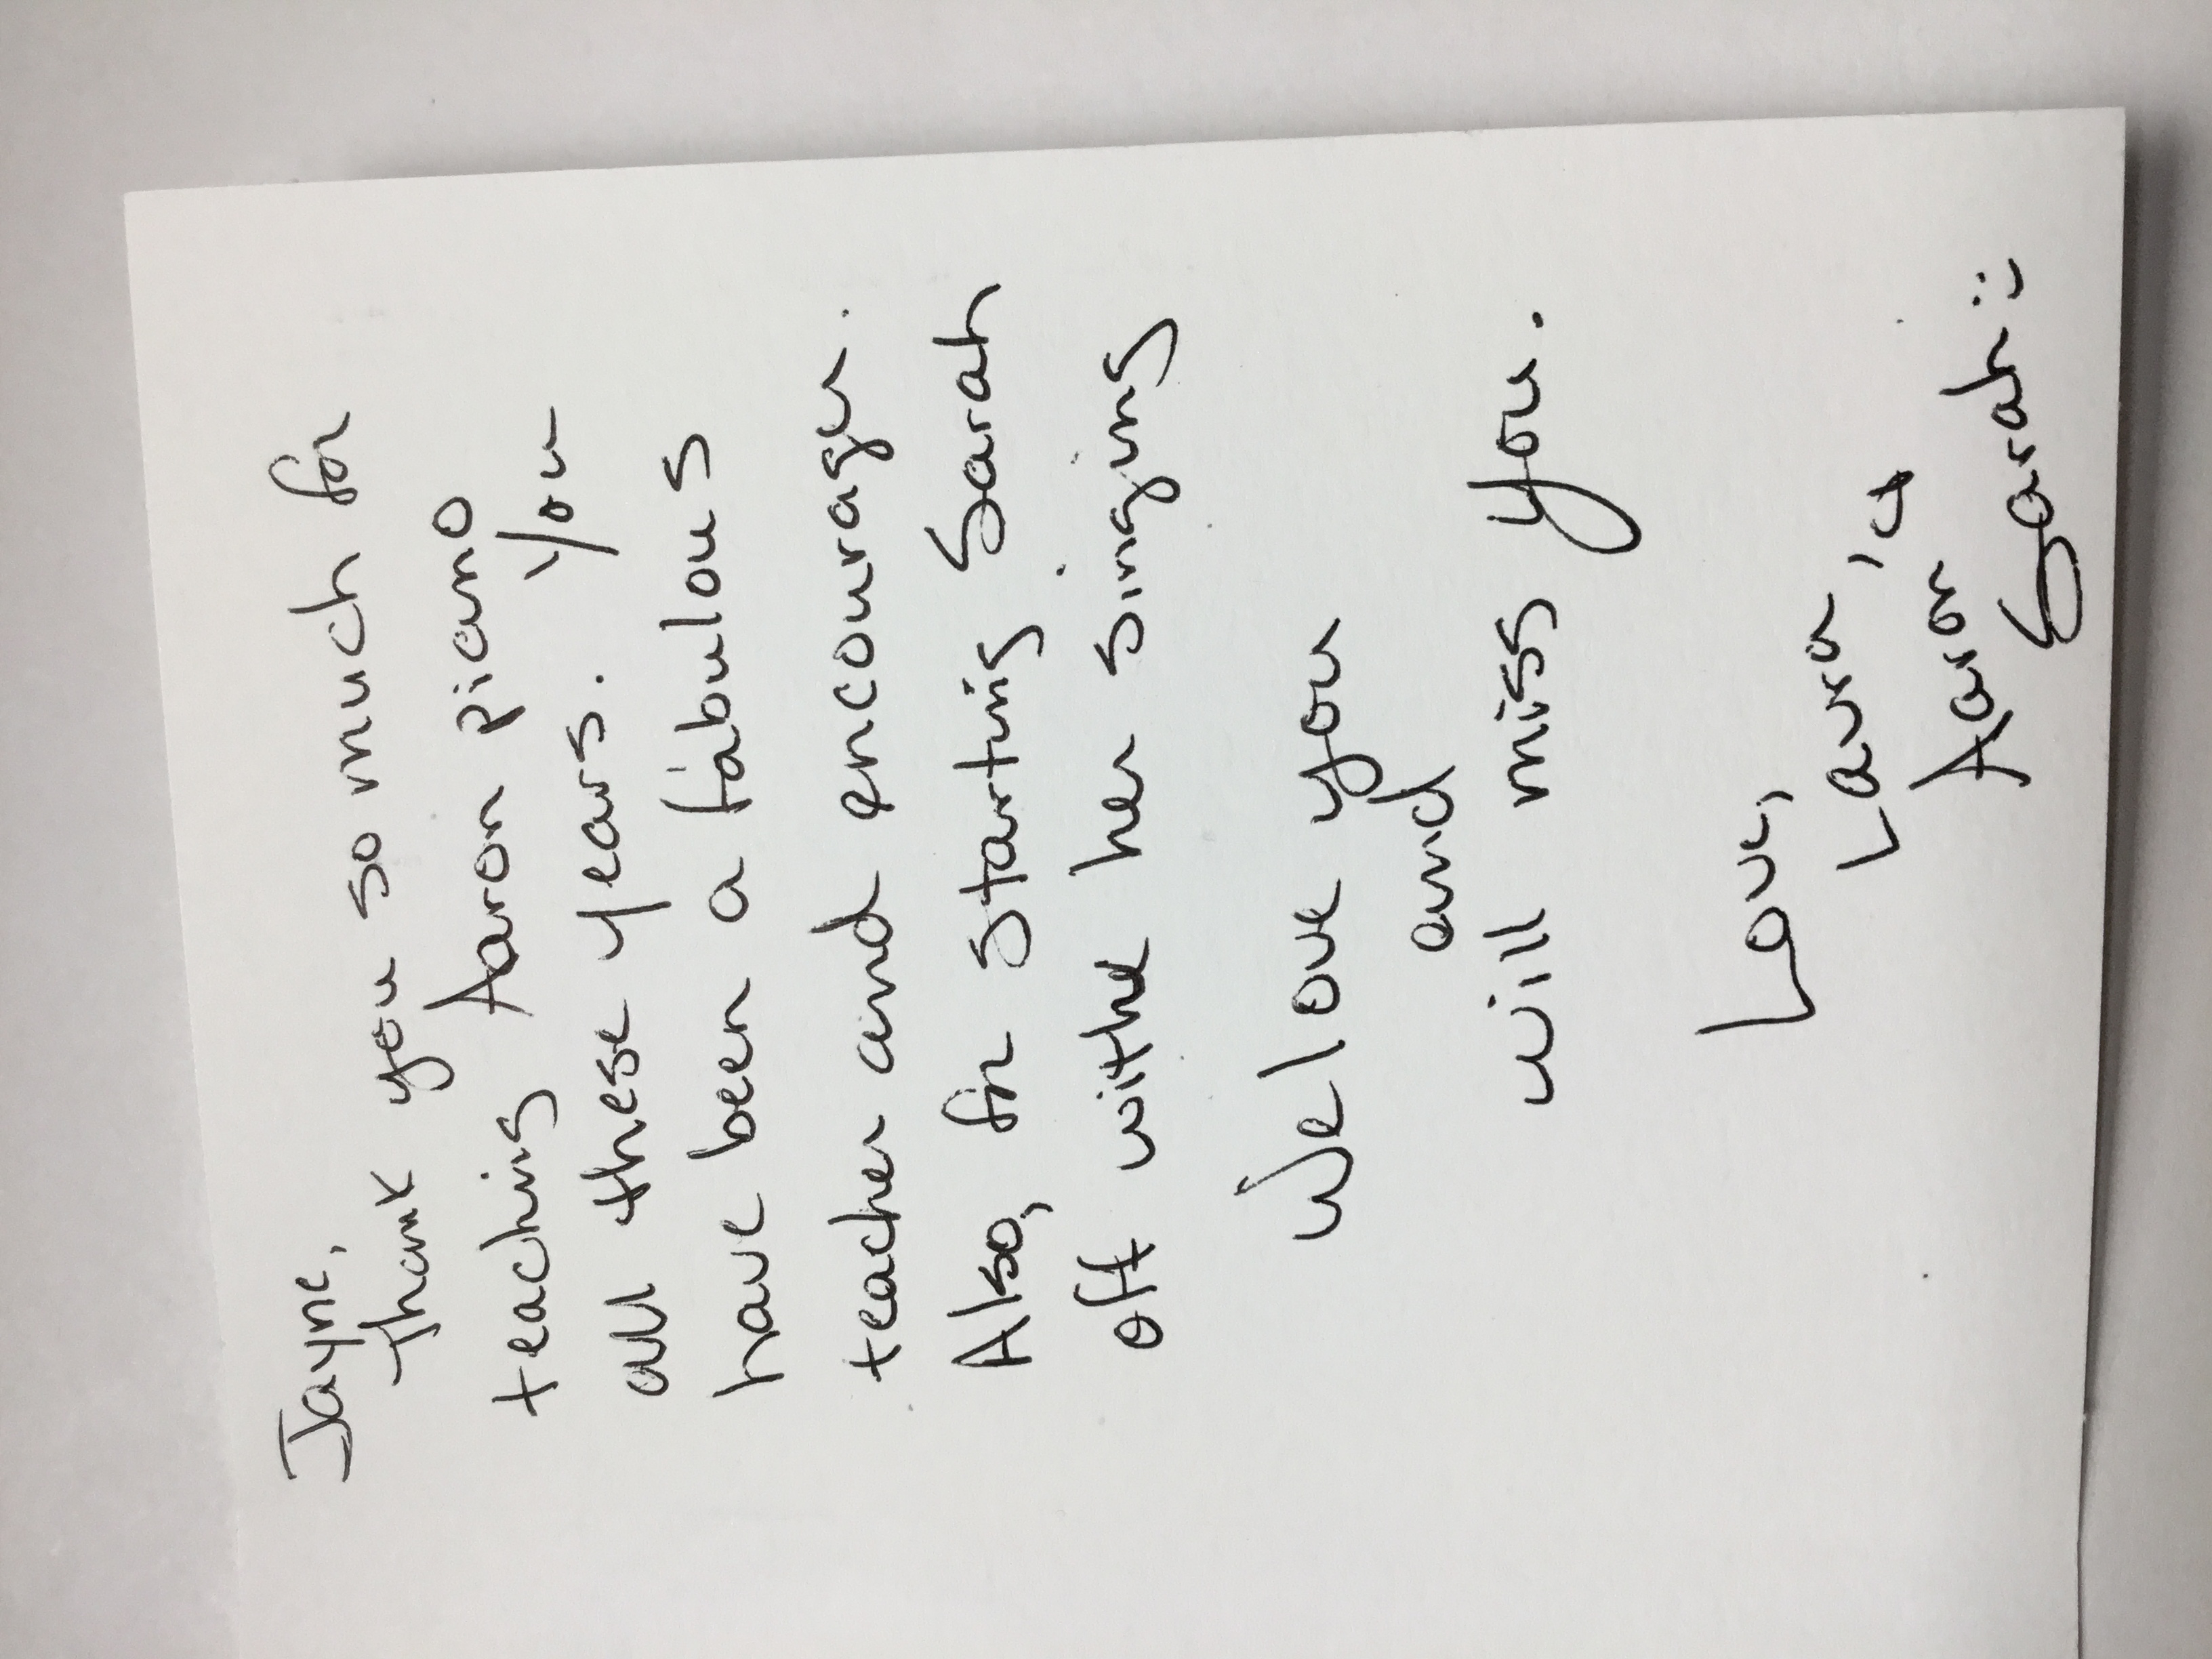 Jayne,
Thank you so much for
teaching Aaron piano
all these years. You
have been a fabulous
teacher and encourager.
Also, for starting Sarah
off with her singing.
We love you
and
will miss you.
Love,
Laura,
Aaron
Sarah :)